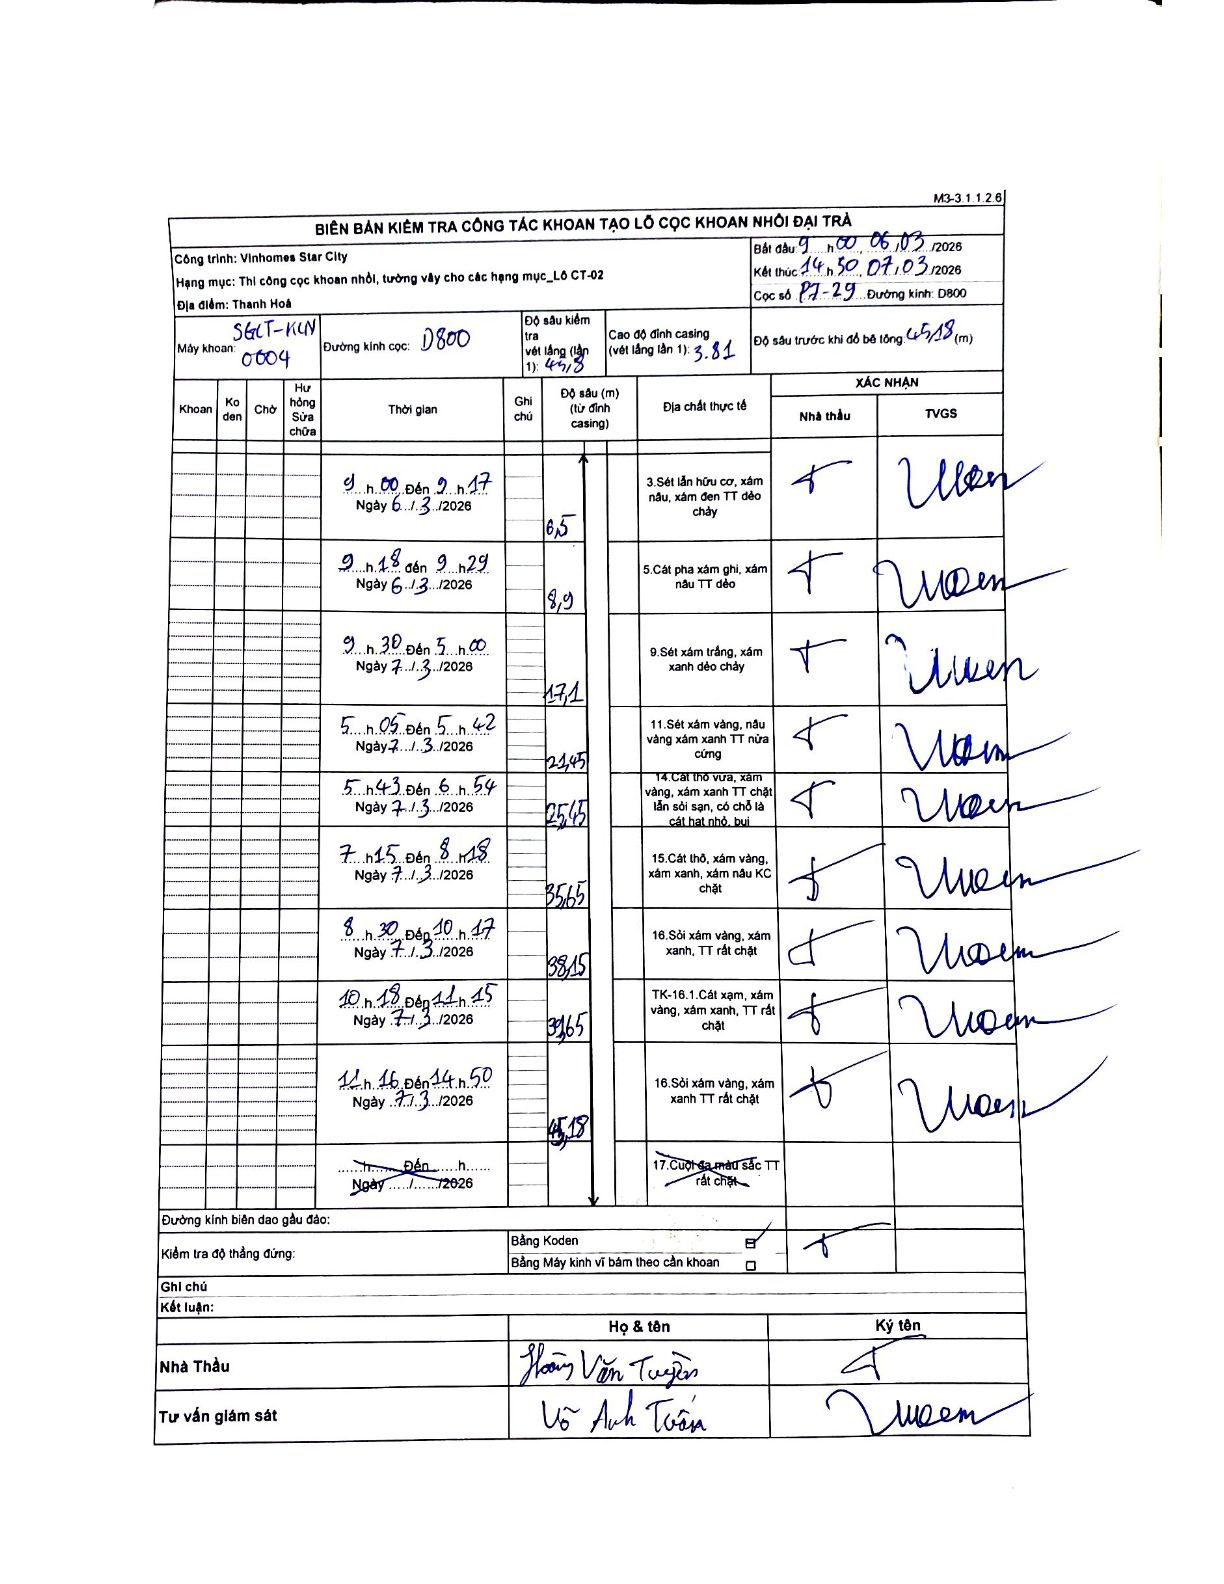 M3-3.1.1.2.6
BIÊN BẢN KIỂM TRA CÔNG TÁC KHOAN TẠO LỖ CỌC KHOAN NHỒI ĐẠI TRÀ
Công trình: Vinhomes Star City
Hạng mục: Thi công cọc khoan nhồi, tường vây cho các hạng mục_Lô CT-02
Địa điểm: Thanh Hoá
Bắt đầu: 9 h 00 06/03/2026
Kết thúc 14 h 50 07/03/2026
Cọc số P7-29 Đường kính: D800
Máy khoan: SGCT-KCN 0004
Đường kính cọc: D800
Độ sâu kiểm tra
vét lắng (lần 1): 45,8
Cao độ đỉnh casing
(vét lắng lần 1): 3.81
Độ sâu trước khi đổ bê tông: 45,18 (m)
Khoan
Ko den
Chờ
Hư hỏng Sửa chữa
Thời gian
Ghi chú
Độ sâu (m)
(từ đỉnh casing)
Địa chất thực tế
XÁC NHẬN
Nhà thầu
TVGS
9 h 00 Đến 9 h 17
Ngày 6/3/2026
6,5
3.Sét lẫn hữu cơ, xám nâu, xám đen TT dẻo chảy
9 h 18 đến 9 h 29
Ngày 6/3/2026
8,9
5.Cát pha xám ghi, xám nâu TT dẻo
9 h 30 Đến 5 h 00
Ngày 7/3/2026
17,1
9.Sét xám trắng, xám xanh dẻo chảy
5 h 05 Đến 5 h 42
Ngày 7/3/2026
21,45
11.Sét xám vàng, nâu vàng xám xanh TT nửa cứng
5 h 43 Đến 6 h 54
Ngày 7/3/2026
25,45
14.Cát thô vừa, xám vàng, xám xanh TT chặt lẫn sỏi sạn, có chỗ là cát hạt nhỏ, bụi
7 h 15 Đến 8 h 18
Ngày 7/3/2026
35,65
15.Cát thô, xám vàng, xám xanh, xám nâu KC chặt
8 h 30 Đến 10 h 17
Ngày 7/3/2026
38,15
16.Sỏi xám vàng, xám xanh, TT rất chặt
10 h 18 Đến 11 h 15
Ngày 7/3/2026
39,65
TK-16.1.Cát xạm, xám vàng, xám xanh, TT rất chặt
11 h 16 Đến 14 h 50
Ngày 7/3/2026
45,18
16.Sỏi xám vàng, xám xanh TT rất chặt
......h...... Đến ......h......
Ngày ...../....../2026
17.Cuội đa màu sắc TT rất chặt
Đường kính biên dao gầu đào:
Kiểm tra độ thẳng đứng:
Bằng Koden
Bằng Máy kinh vĩ bám theo cần khoan
Ghi chú
Kết luận:
Họ & tên
Ký tên
Nhà Thầu
Hoàng Văn Tuyền
Tư vấn giám sát
Võ Anh Tuấn